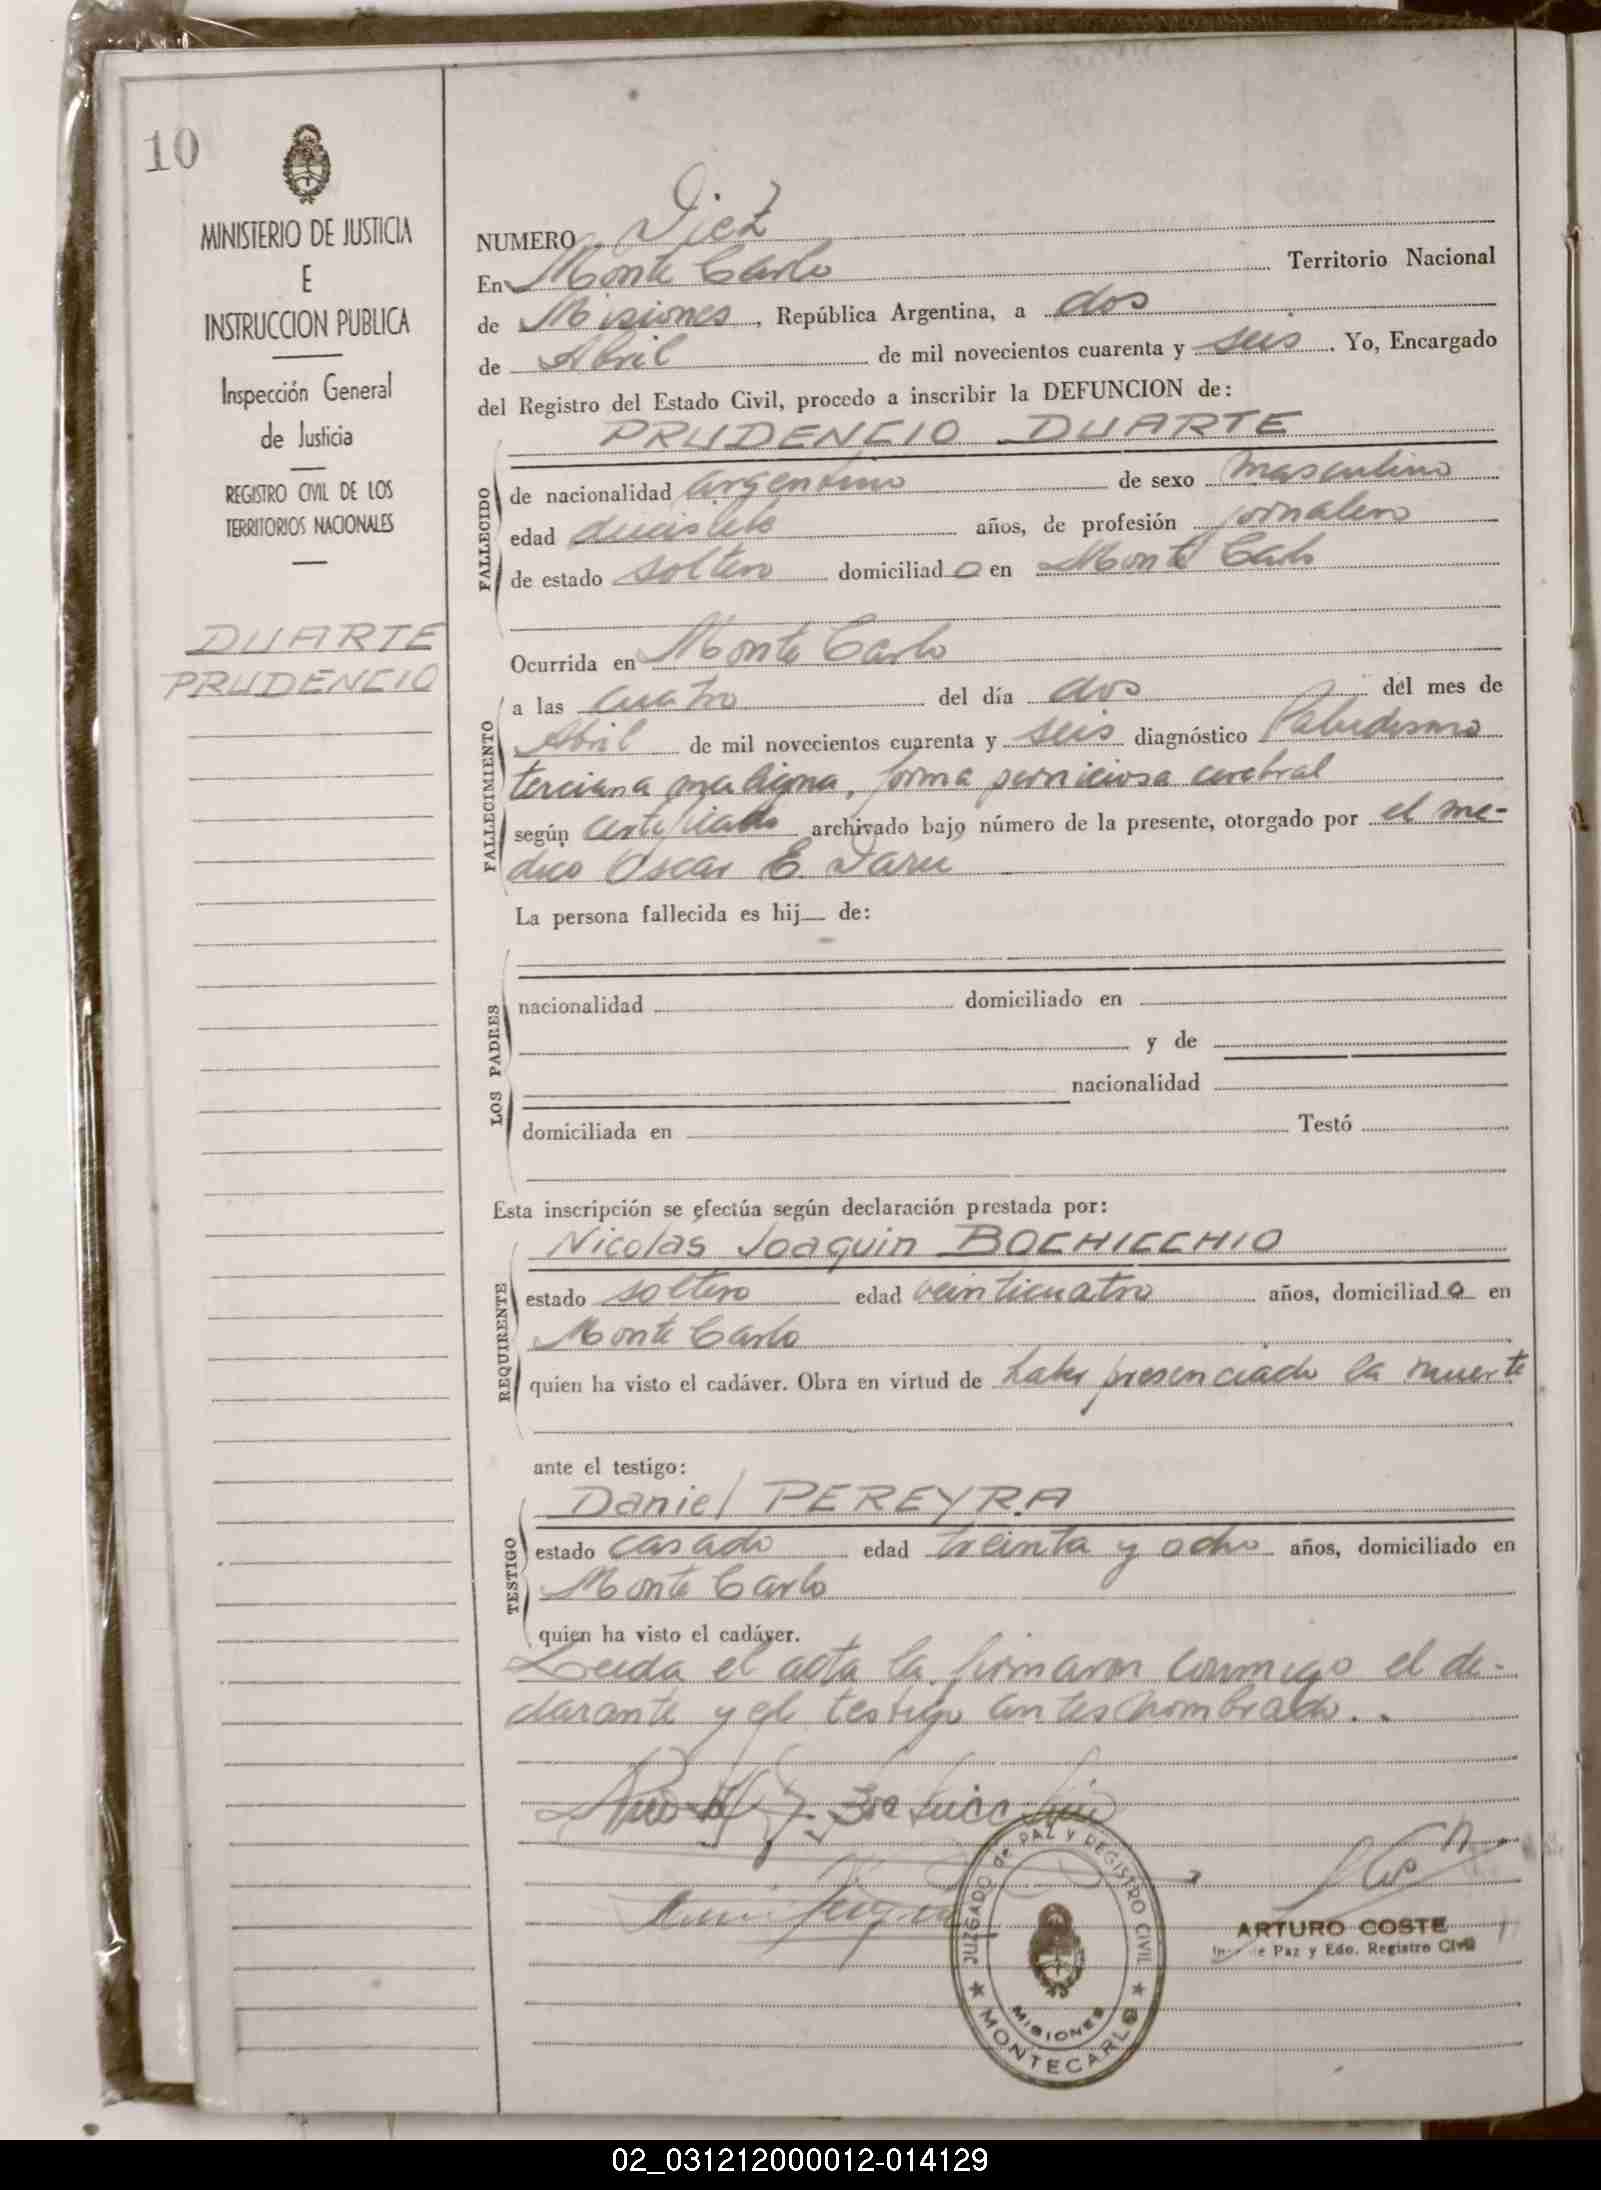 10
MINISTERIO DE JUSTICIA
E
INSTRUCCION PUBLICA
Inspección General
de Justicia
REGISTRO CIVIL DE LOS
TERRITORIOS NACIONALES
DUARTE
PRUDENCIO
NUMERO Diez
En Monte Carlo Territorio Nacional
de Misiones, República Argentina, a dos
de Abril de mil novecientos cuarenta y seis. Yo, Encargado
del Registro del Estado Civil, procedo a inscribir la DEFUNCION de:
PRUDENCIO DUARTE
FALLECIDO
de nacionalidad argentino de sexo masculino
edad años, de profesión jornalero
de estado soltero domiciliado en Monte Carlo
Ocurrida en Monte Carlo
FALLECIMIENTO
a las cuatro del día dos del mes de
Abril de mil novecientos cuarenta y seis diagnóstico Paludismo
terciana maligna, forma perniciosa cerebral
según certificado archivado bajo número de la presente, otorgado por el me-
dico Oscar E.
La persona fallecida es hij de:
LOS PADRES
nacionalidad domiciliado en
y de
nacionalidad
domiciliada en Testó
Esta inscripción se efectúa según declaración prestada por:
Nicolás Joaquin BOCHICCHIO
REQUIRENTE
estado soltero edad veinticuatro años, domiciliado en
Monte Carlo
quien ha visto el cadáver. Obra en virtud de haber presenciado la muerte
ante el testigo:
Daniel PEREYRA
TESTIGO
estado casado edad treinta y ocho años, domiciliado en
Monte Carlo
quien ha visto el cadáver.
Leida el acta la firmaron conmigo el de-
clarante y el testigo antes nombrado..
JUZGADO de PAZ Y REGISTRO CIVIL
MISIONES
MONTECARLO
ARTURO COSTE
de Paz y Edo. Registro Civil
02_031212000012-014129